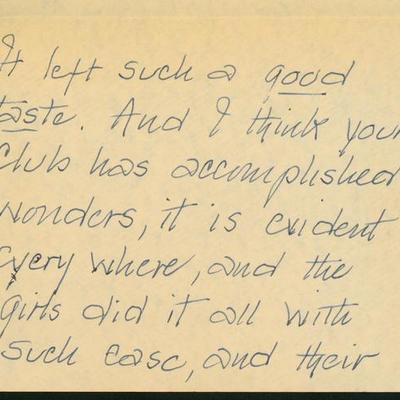 It left such a good
taste. And I think your
Club has accomplished
wonders, it is evident
every where, and the
girls did it all with
such ease, and their